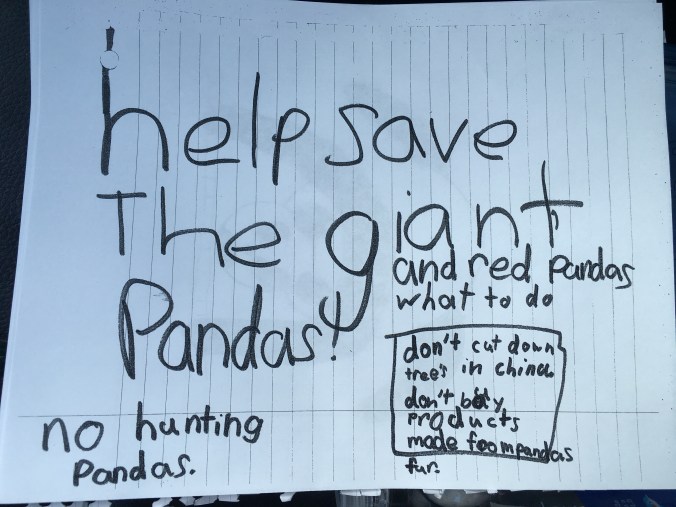 help save
The giant
and red pandas
Pandas!
what to do
don't cut down
tree's in china
don't buy
products
made foom pandas
fur.
no hunting
Pandas.